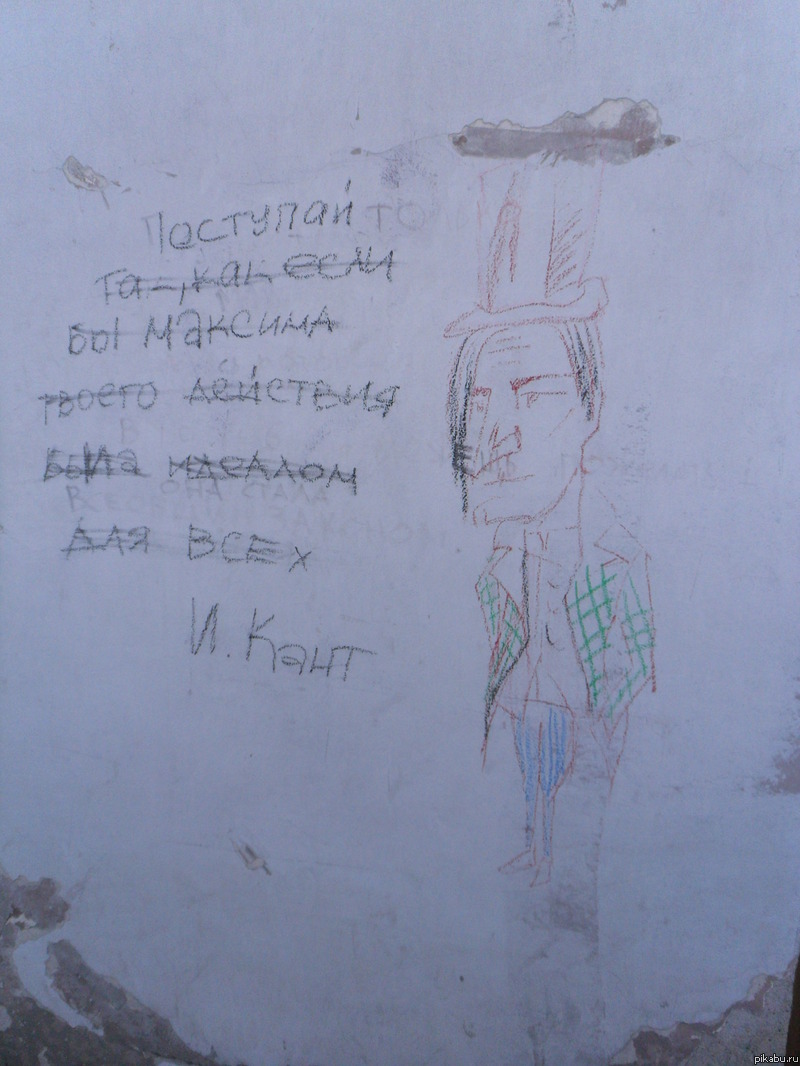 Поступай
так, как если
бы максима
твоего действия
была идеалом
для всех
И. Кант
она стала
pikabu.ru